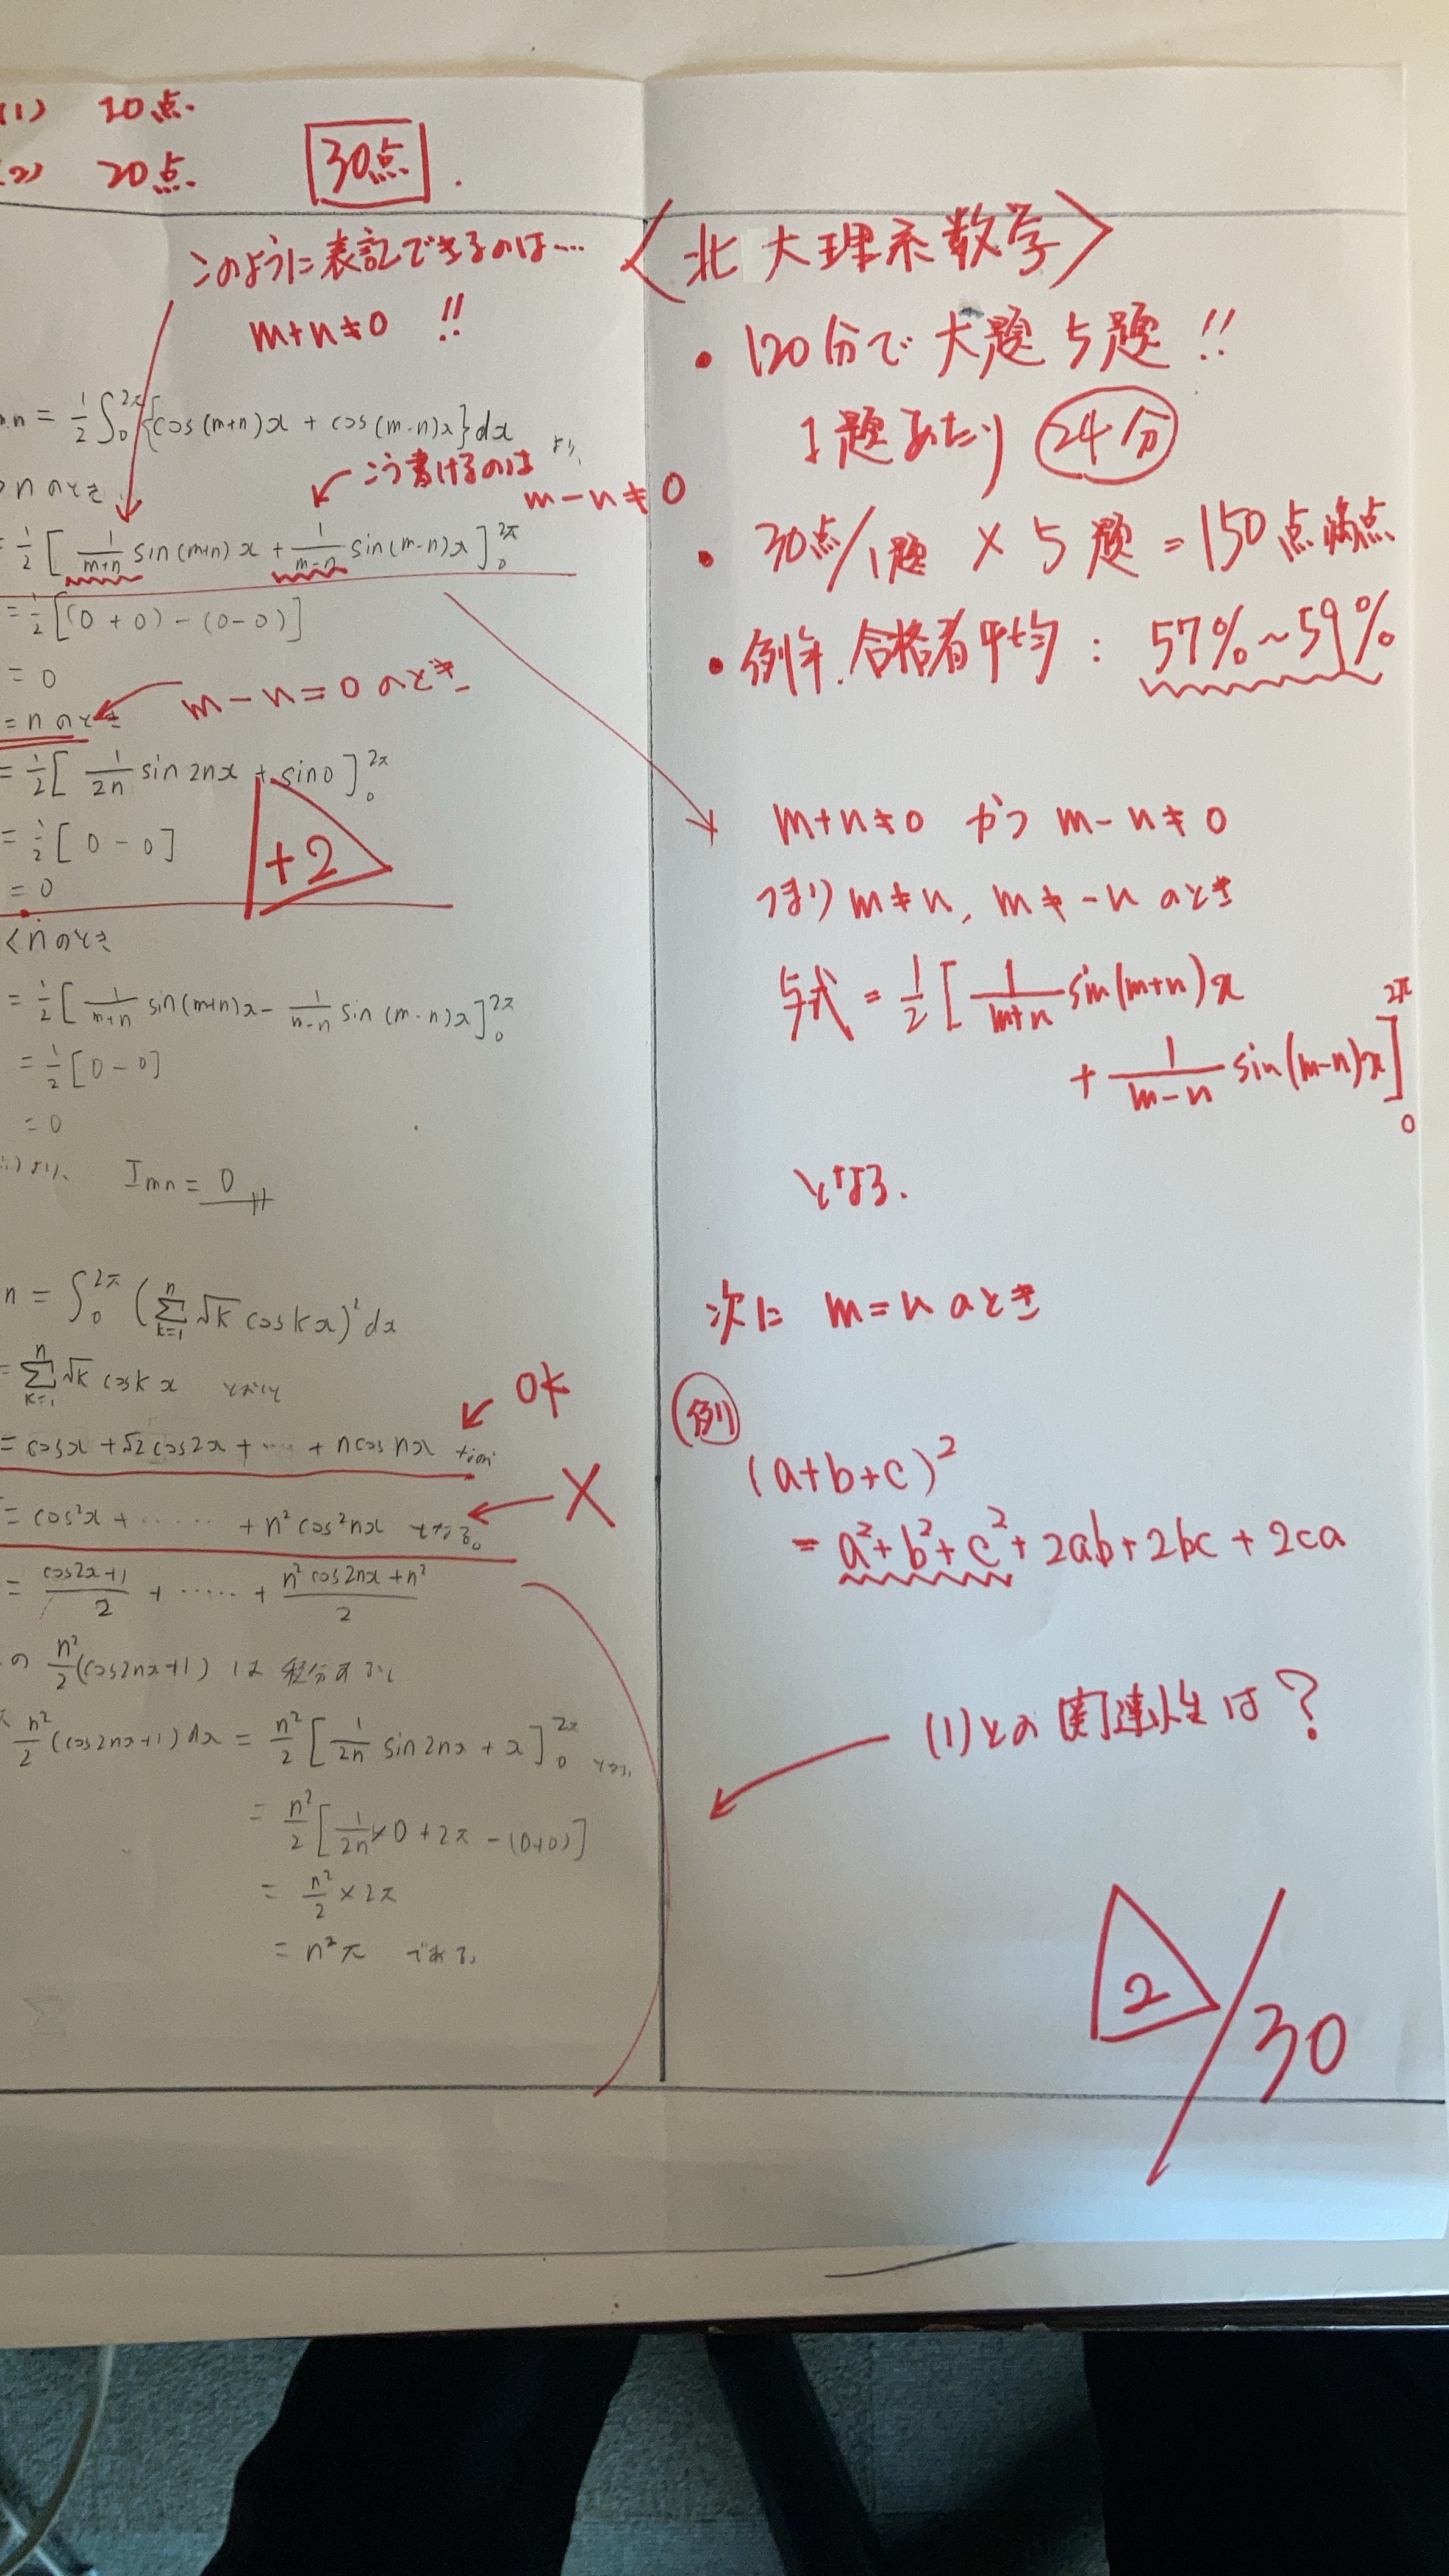 (1) 10点.
(2) 20点.
30点.
このように表記できるのは…
m+n≠0 !!
m.n = 1/2 ∫₀^2π {cos(m+n)x + cos(m-n)x}dx より、
こう書けるのは
m-n≠0
nのとき
= 1/2 [ 1/(m+n) sin(m+n)x + 1/(m-n) sin(m-n)x ]₀^2π
= 1/2 [(0+0)-(0-0)]
= 0
m-n=0のとき
=nのとき
= 1/2 [ 1/2n sin2nx + sin0 ]₀^2π
= 1/2 [0-0]
+2
= 0
<nのとき
= 1/2 [ 1/(m+n) sin(m+n)x - 1/(m-n) sin(m-n)x ]₀^2π
= 1/2 [0-0]
= 0
より、 Imn = 0
n = ∫₀^2π (Σ_{k=1}^n √k cos kx)² dx
= Σ_{k=1}^n √k cos kx とおくと
OK
= cosx + √2 cos2x + … + n cos nx
×
= cos²x + …… + n² cos²nx となる。
= (cos2x+1)/2 + …… + (n² cos2nx+n²)/2
の n²/2 (cos2nx+1) は 積分すると
n²/2 (cos2nx+1)dx = n²/2 [ 1/2n sin2nx + x ]₀^2π
= n²/2 [ 1/2n × 0 + 2π - (0+0) ]
= n²/2 × 2π
= n²π である。
〈北大理系数学〉
• 120分で大題5題!!
1題あたり 24分
• 30点/1題 × 5題 = 150点満点
• 例年.合格者平均: 57%~59%
m+n≠0 かつ m-n≠0
つまり m≠n, m≠-nのとき
与式 = 1/2 [ 1/(m+n) sin(m+n)x
+ 1/(m-n) sin(m-n)x ]₀^2π
となる.
次に m=nのとき
例
(a+b+c)²
= a²+b²+c²+2ab+2bc+2ca
(1)との関連性は?
2/30